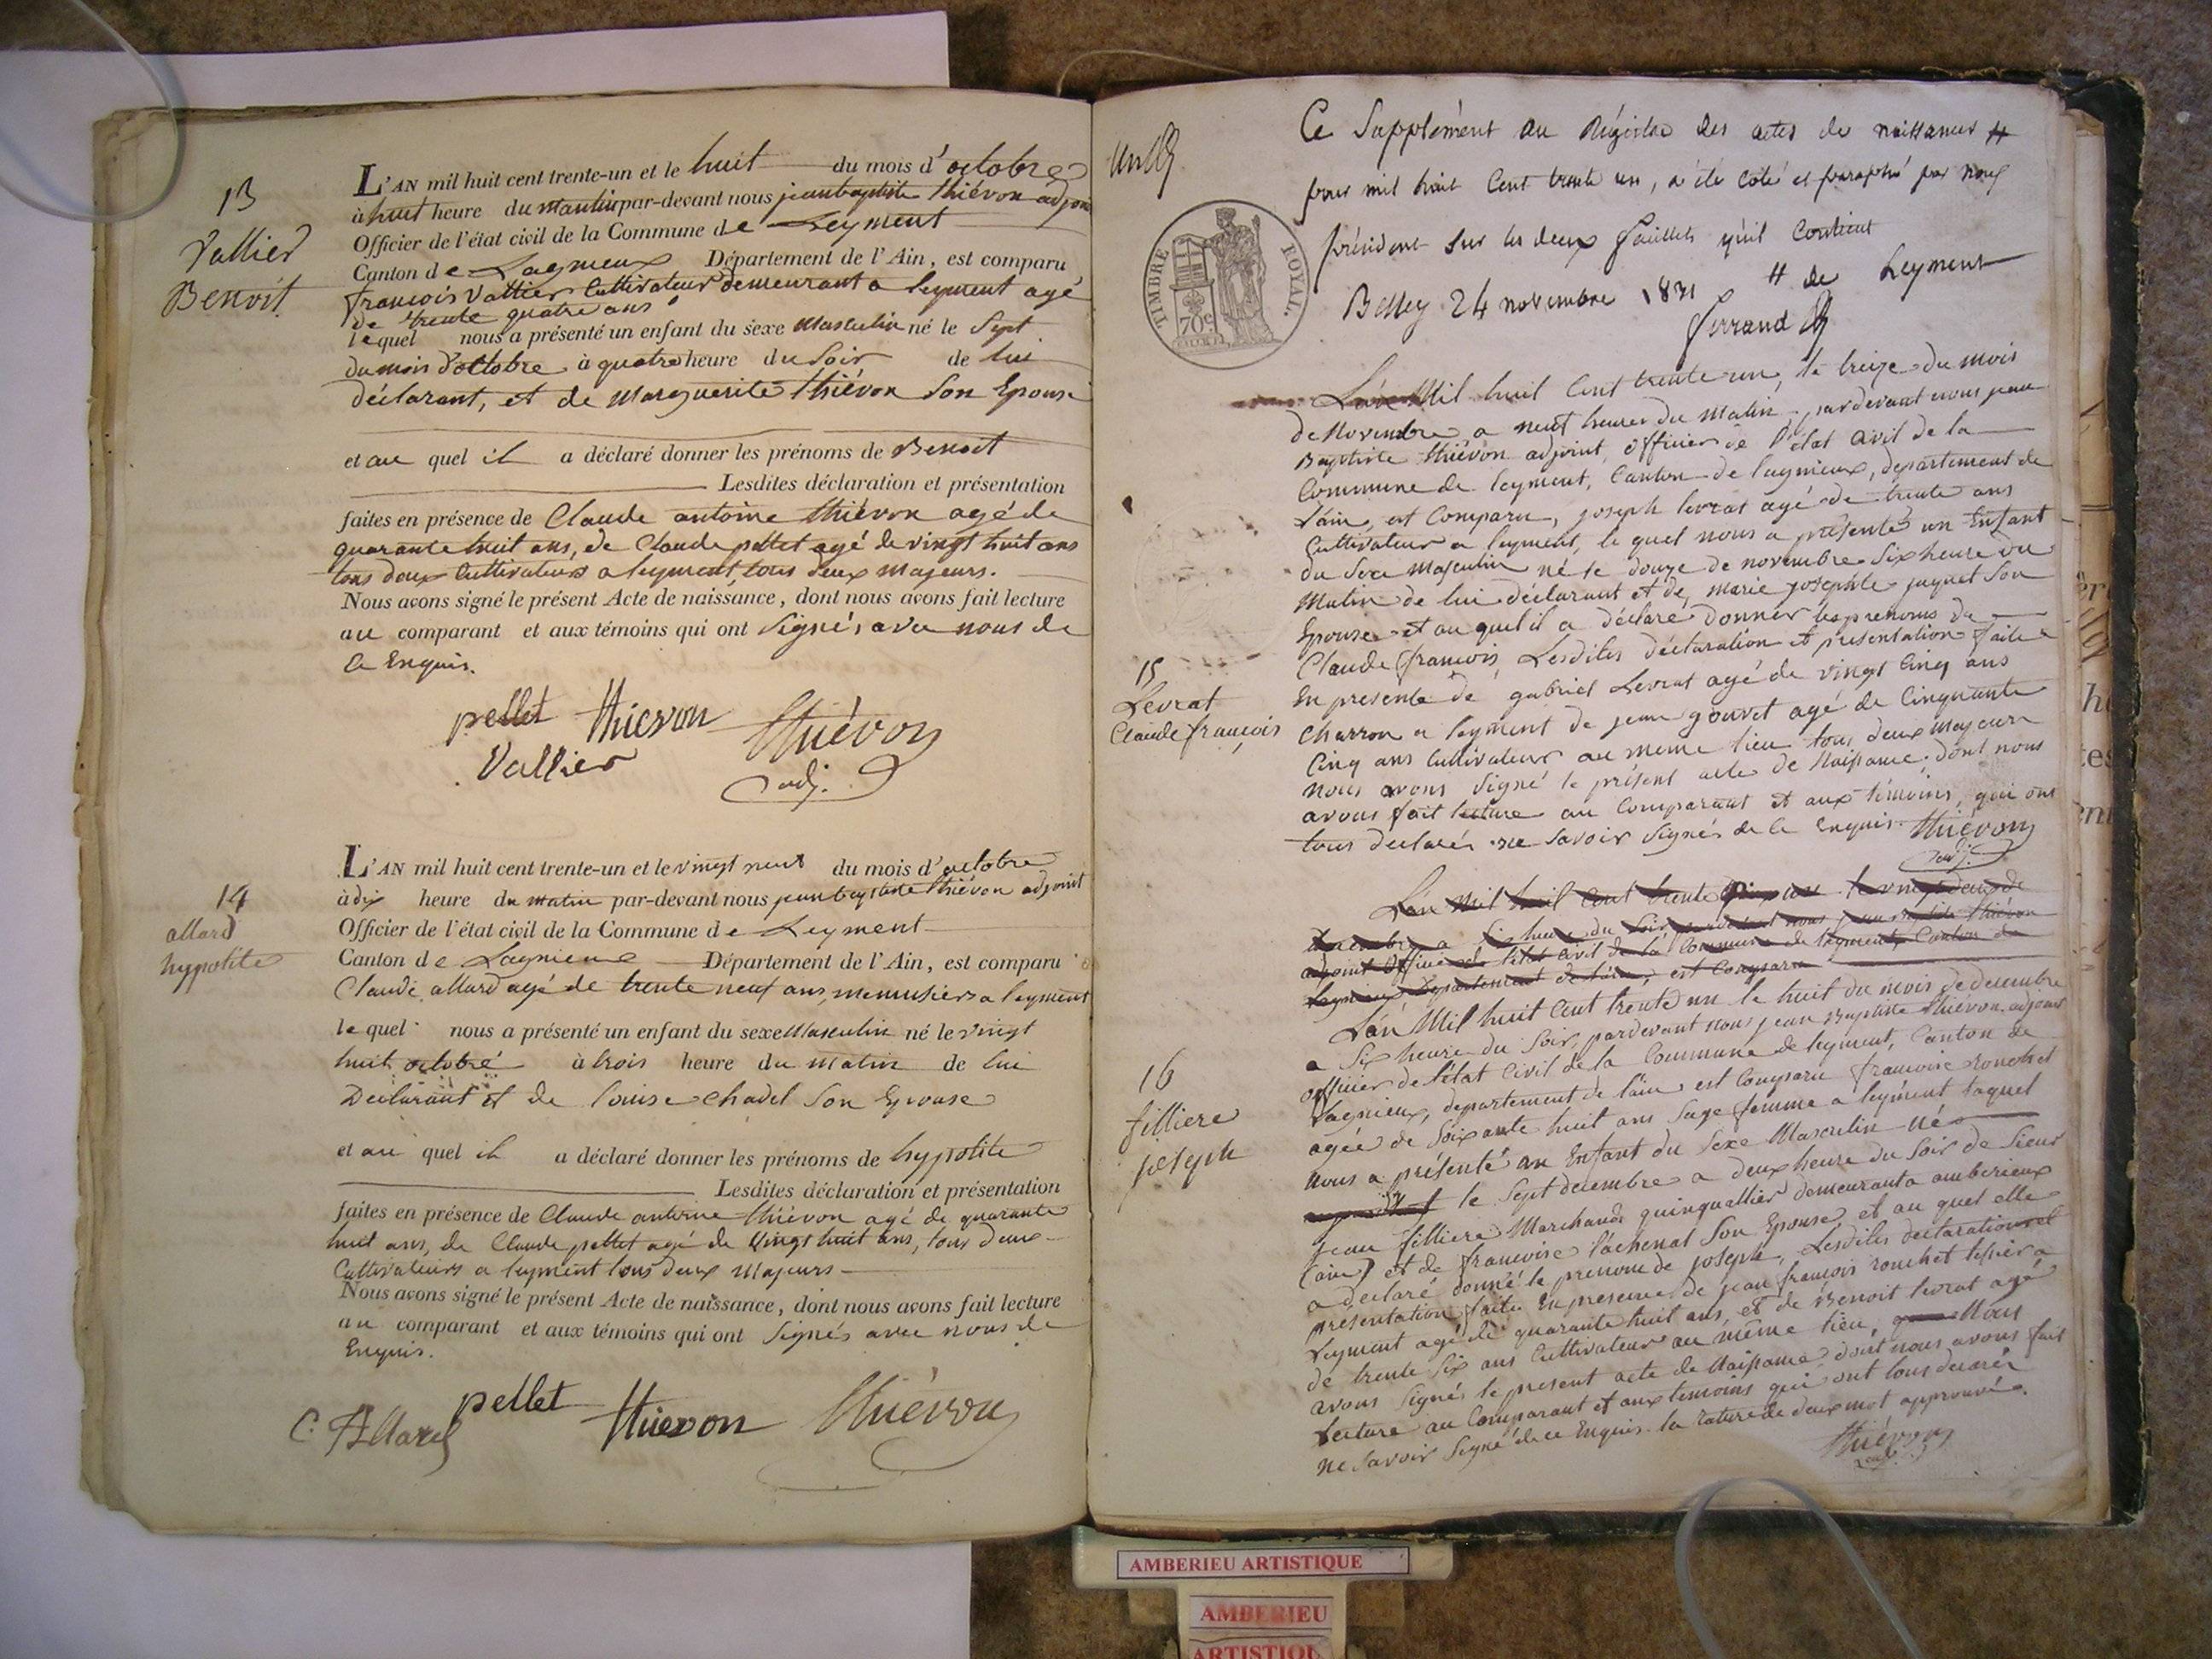 13
Vallier
Benoit
L'AN mil huit cent trente-un et le huit du mois d'octobre
à huit heure du matin par-devant nous jean baptiste thiévon adjoint
Officier de l'état civil de la Commune de Leyment
Canton de Lagnieux Département de l'Ain, est comparu
francois Vallier Cultivateur demeurant a leyment agé
de trente quatre ans
lequel nous a présenté un enfant du sexe Masculin né le Sept
du mois d'octobre à quatre heure du Soir de lui
déclarant, et de Marguerite thiévon Son Epouse
et au quel il a déclaré donner les prénoms de Benoit
Lesdites déclaration et présentation
faites en présence de Claude antoine thiévon agé de
quarante huit ans, de Claude pellet agé de vingt huit ans
tous deux Cultivateurs a leyment, tous deux Majeurs.
Nous avons signé le présent Acte de naissance, dont nous avons fait lecture
au comparant et aux témoins qui ont Signés avec nous de
Ce Enquis.
pellet thievon Thiévon
Vallier adj.
14
allard
hypolite
L'AN mil huit cent trente-un et le vingt neuf du mois d'octobre
à dix heure du matin par-devant nous jean baptiste thiévon adjoint
Officier de l'état civil de la Commune de Leyment
Canton de Lagnieux Département de l'Ain, est comparu
Claude allard agé de trente neuf ans, menusier a leyment
le quel nous a présenté un enfant du sexe Masculin né le vingt
huit octobre à trois heure du matin de lui
Déclarant et de louise chadel Son Epouse
et au quel il a déclaré donner les prénoms de hypolite
Lesdites déclaration et présentation
faites en présence de Claude antoine thiévon agé de quarante
huit ans, de Claude pellet agé de Vingt huit ans, tous deux
Cultivateurs a leyment tous deux Majeurs
Nous avons signé le présent Acte de naissance, dont nous avons fait lecture
au comparant et aux témoins qui ont Signés avec nous de
Enquis.
C. Allard pellet thievon Thiévon
Ce Supplément au Régistre des actes de naissances #
pour mil huit Cent trente un, a été coté et paraphé par nous
président sur les deux feuillets qu'il Contient
# de Leyment
Belley 24 novembre 1831
ferrand
TIMBRE ROYAL.
70c
L'an Mil huit Cent trente un, le treize du mois
de Novembre a neuf heures du Matin, pardevant nous jean
Baptiste thiévon adjoint, officier de l'état Civil de la
Commune de leyment, Canton de lagnieux, departement de
L'ain, est Comparu, joseph levrat agé de trente ans
Cultivateur a leyment, le quel nous a présenté un Enfant
du Sexe Masculin né le douze de novembre Six heure du
Matin de lui déclarant et de, marie josephte juquet Son
Epouse et au quel il a déclaré donner les prenoms de
Claude françois, Lesdites déclaration et présentation faite
15
Levrat
Claude françois
En presente de gabriel Levrat agé de vingt Cinq ans
Charron a leyment de jean gouvet agé de Cinquante
Cinq ans Cultivateur au meme lieu tous deux Majeurs
nous avons Signé le présent acte de Naissance, dont nous
avons fait lecture au Comparant et aux témoins, qui ont
tous declarés ne savoir Signés de Ce Enquis. Thiévon
adj.
L'an Mil huit Cent trente un le vingt deux de
Decembre a Six heure du Soir pardevant nous jean baptiste thiévon
adjoint officier de l'état Civil de la Commune de leyment Canton de
lagnieux Departement de l'ain, est Comparu
L'an Mil huit Cent trente un le huit du mois de decembre
a Six heure du Soir, pardevant nous jean Baptiste thiévon adjoint
officier de l'état Civil de la Commune de leyment, Canton de
Lagnieux, departement de l'ain est Comparu francoise ronchet
16
filliere
joseph
agée de Soixante huit ans Sage femme a leyment laquel
nous a présenté un Enfant du Sexe Masculin né
le Sept decembre a deux heure du Soir de Sieur
jean filliere Marchand quinquallier demeurant a amberieux
(ain) et de francoise lachenal Son Epouse et au quel elle
a declaré donné le prenom de joseph, Lesdites declaration et
présentation faite En presence de jean françois ronchet tissier a
Leyment agé de quarante huit ans, et de Benoit levrat agé
de trente Six ans Cultivateur au même lieu, Nous
avons Signés le present acte de Naissance dont nous avons fait
Lecture au Comparant et aux temoins qui ont tous declarés
ne Savoir Signé de ce Enquis. la rature de deux mot approuvé.
Thiévon
adj.
AMBERIEU ARTISTIQUE
AMBERIEU
ARTISTIQU